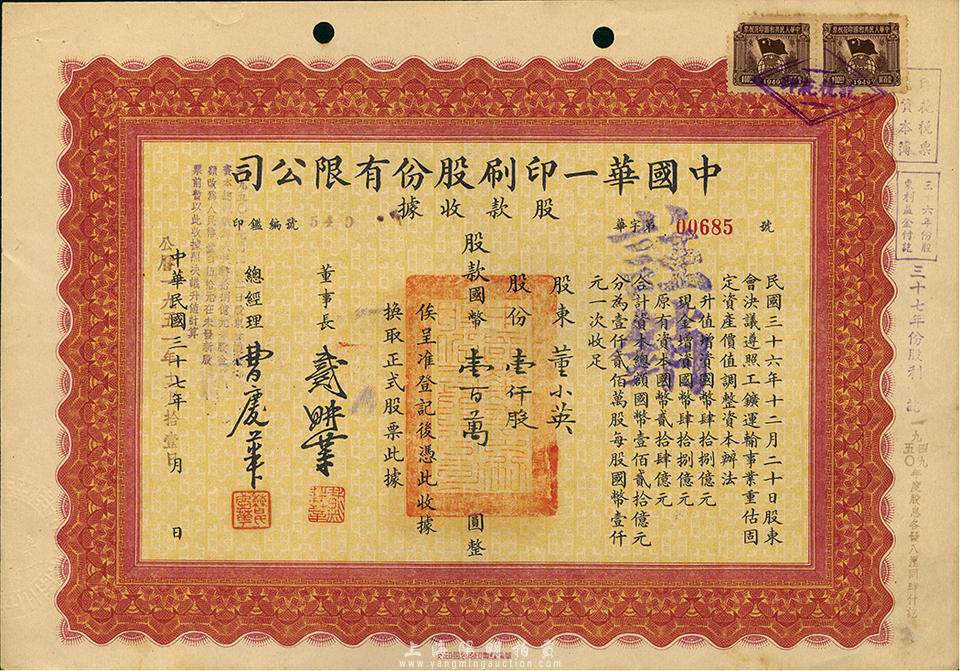 中國華一印刷股份有限公司
股款收據
華字第 00685 號
印鑑編號 540
民國三十六年十二月二十日股東
會決議遵照工鑛運輸事業重估固
定資產價值調整資本辦法
升值增資國幣肆拾捌億元
現金增資國幣肆拾捌億元
原有資本國幣貳拾肆億元
合計資本總額國幣壹佰貳拾億元
分為壹仟貳佰萬股每股國幣壹仟
元一次收足
股東 董小英
股份 壹仟股
股款國幣 壹百萬 圓整
俟呈准登記後憑此收據
換取正式股票此據
董事長
總經理 曹慶華
中華民國三十七年 月 日
公曆一九五一年 拾壹
票前暫以此收據照決議升值計算
中華人民共和國印花稅票
1949
中華人民共和國印花稅票
1949
印花稅票
資本簿
三六年份股
三十七年份股利
www.yangmingauction.com